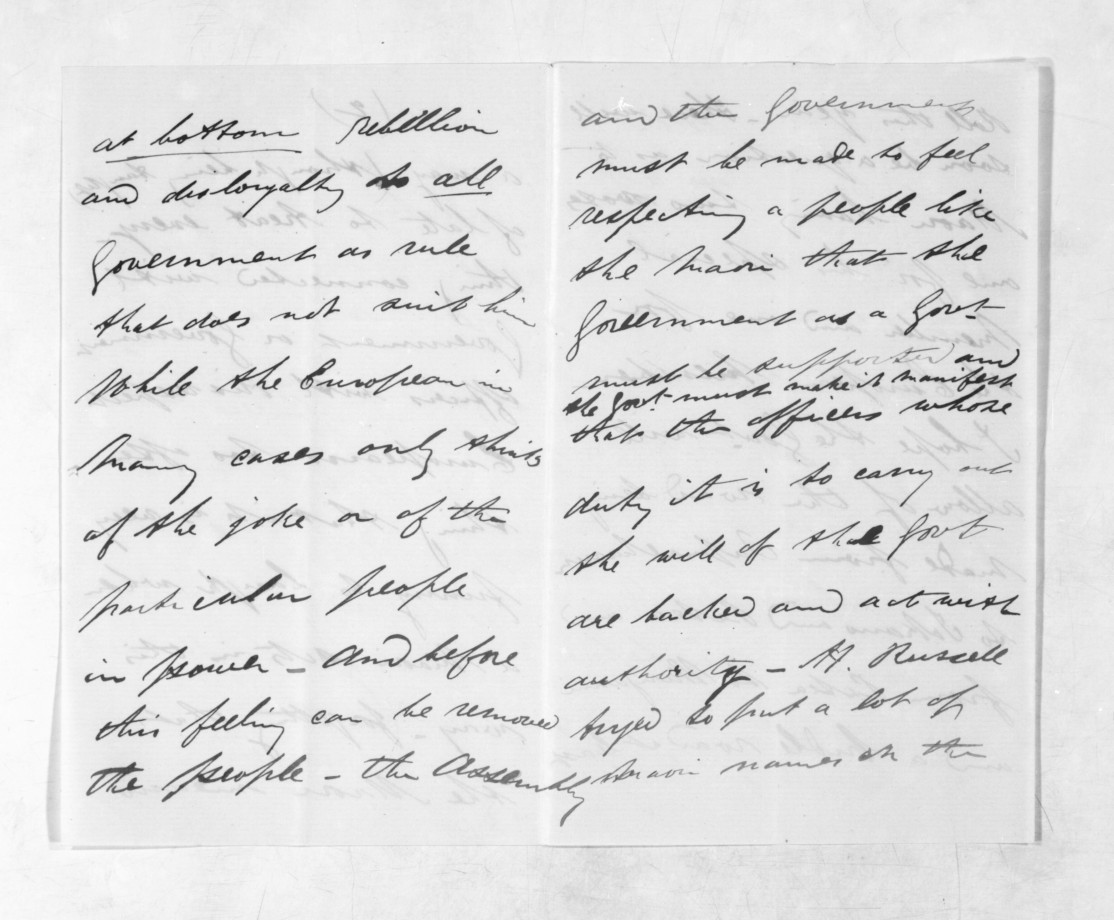 at bottom rebellion
and disloyalty to all
Government as rule
that does not suit him
While the European in
many cases only thinks
of the joke or of the
particular people
in power - And before
this feeling can be removed
the people - the Assembly
and the Government
must be made to feel
respecting a people like
the Maori that the
Government as a Govt
must be supported and
the Govt must make it manifest
that the officers whose
duty it is to carry out
the will of the Govt
are backed and act with
authority - H. Russell
tryed to put a lot of
Maori names on the